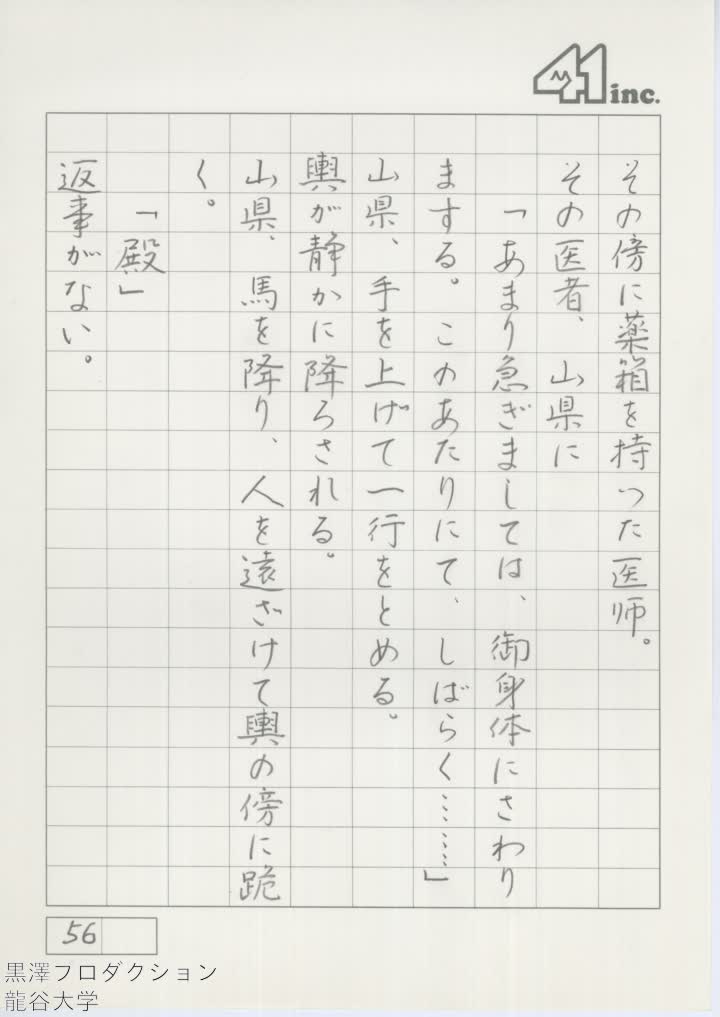 41 inc.
その傍に薬箱を持った医師。
その医者、山県に
「あまり急ぎましては、御身体にさわり
まする。このあたりにて、しばらく……」
山県、手を上げて一行をとめる。
輿が静かに降ろされる。
山県、馬を降り、人を遠ざけて輿の傍に跪
く。
「殿」
返事がない。
56
黒澤フロダクション
龍谷大学